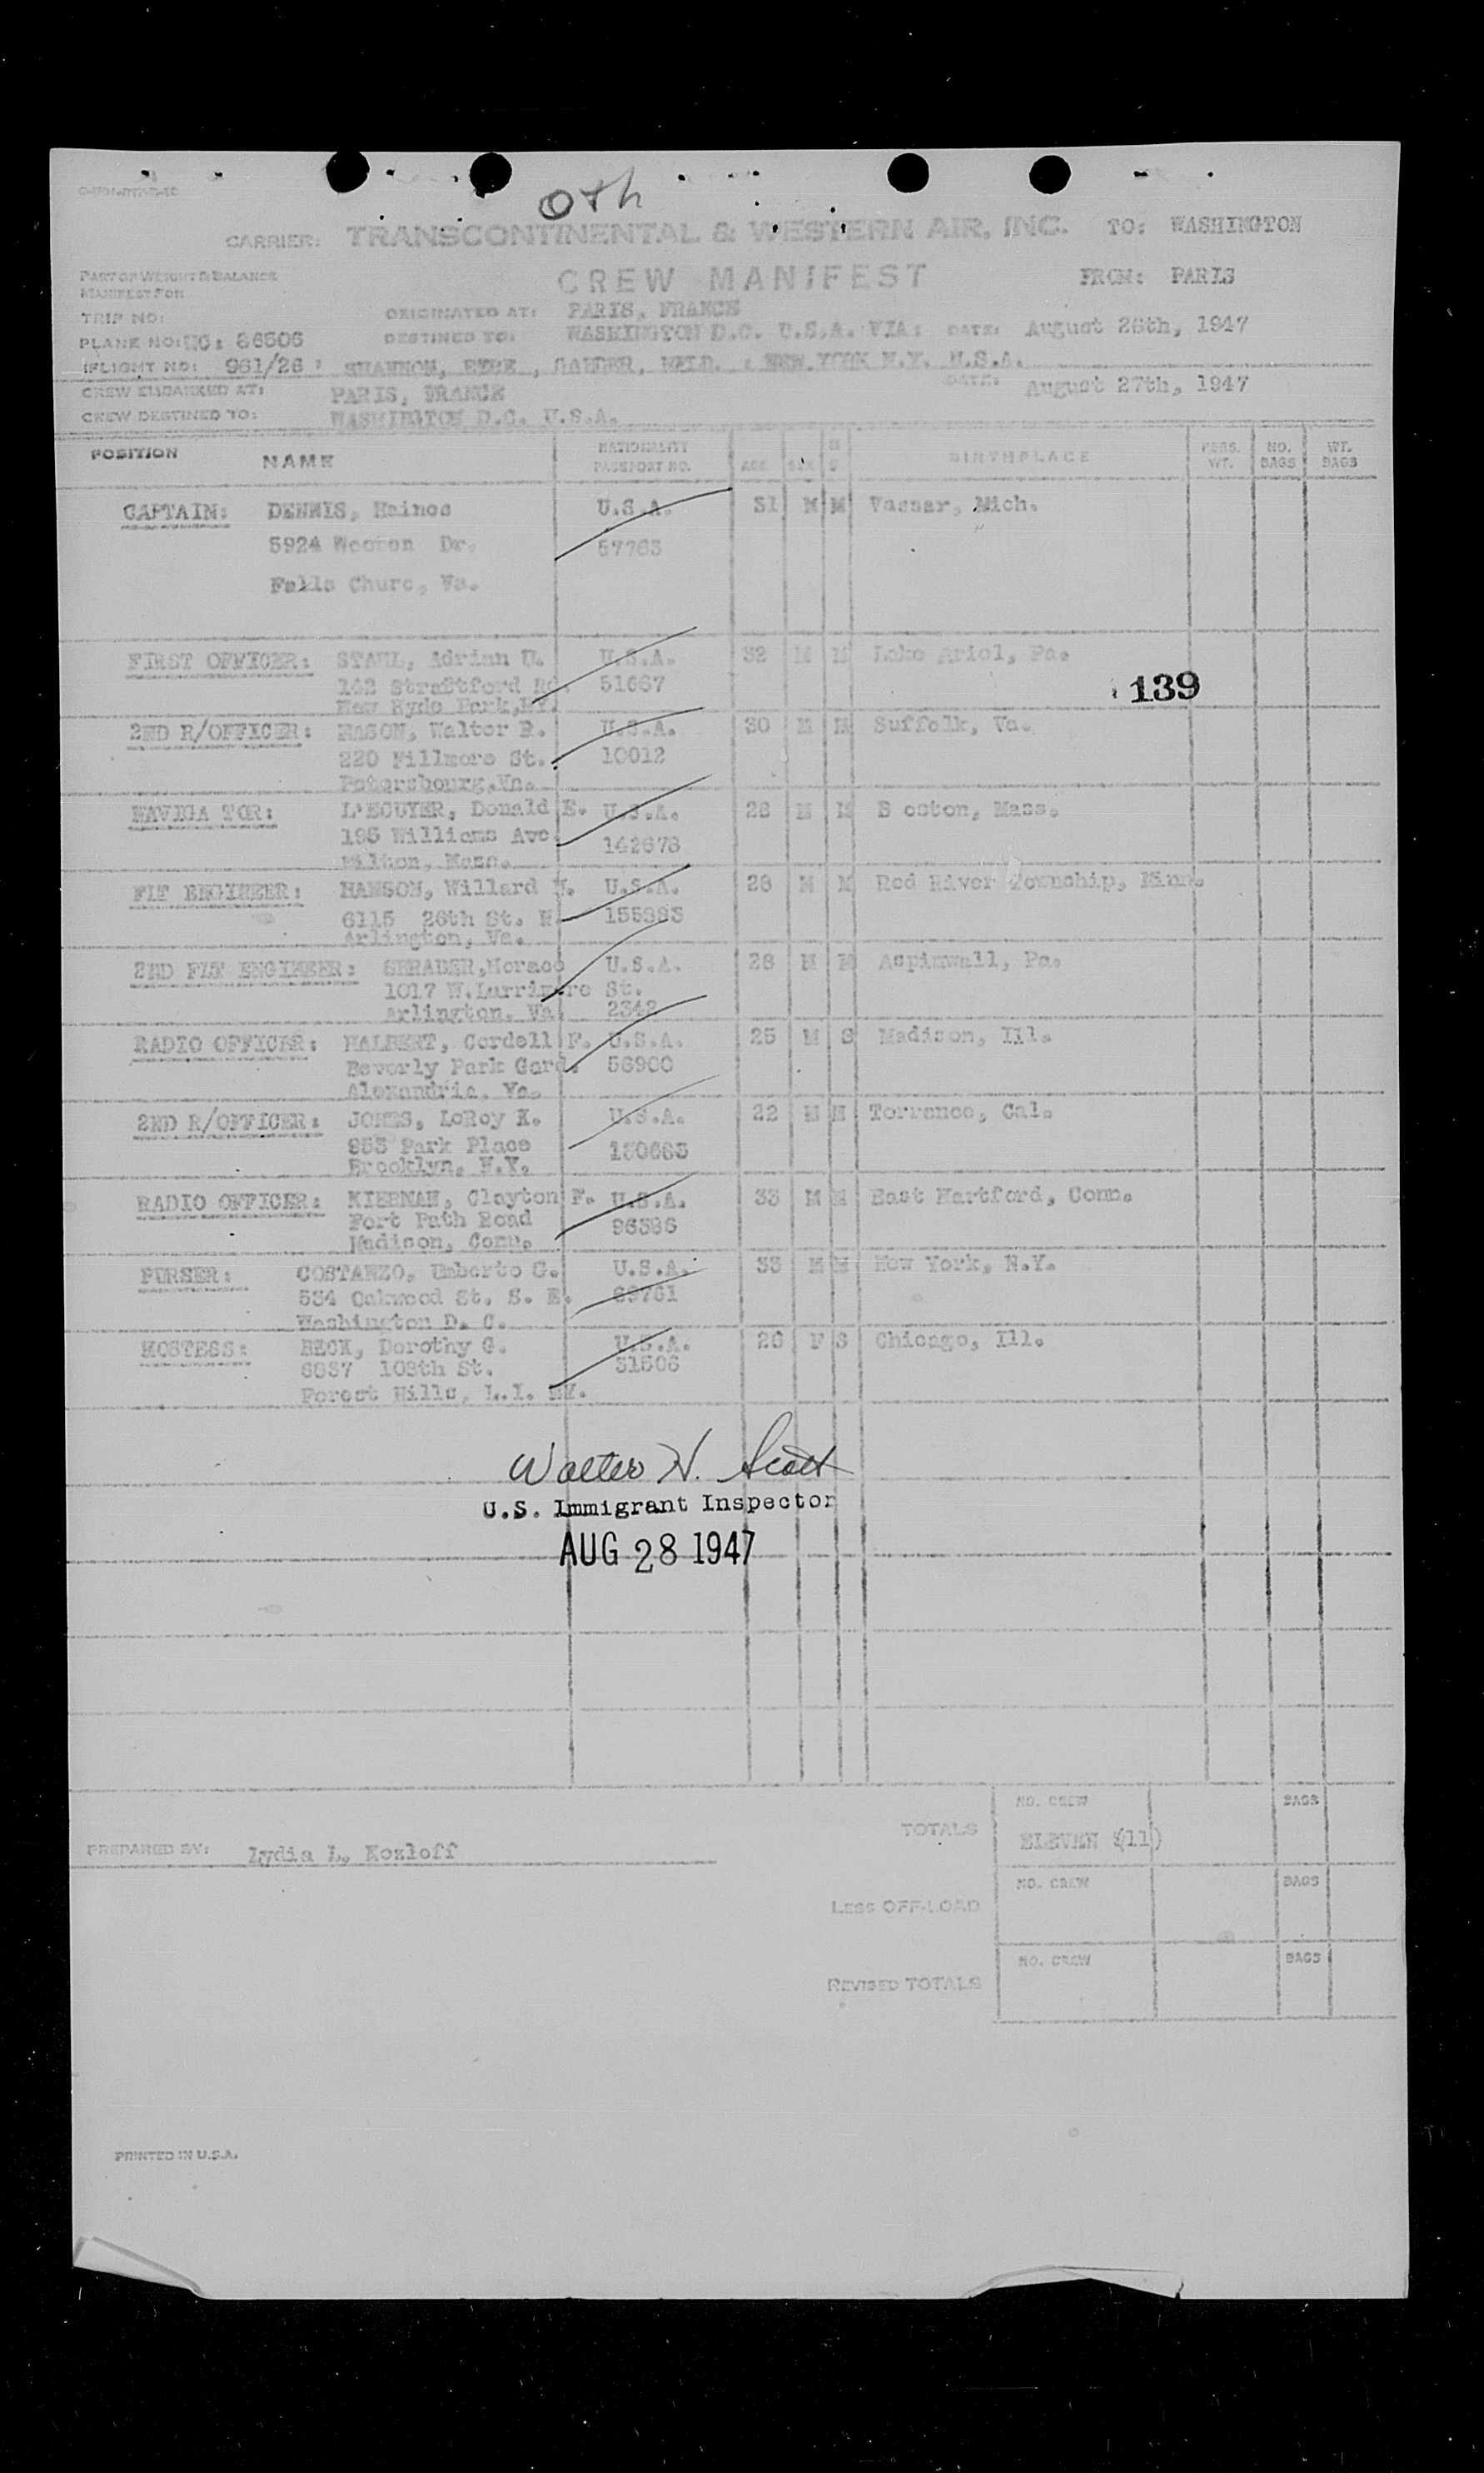 Oth
CARRIER: TRANSCONTINENTAL & WESTERN AIR, INC. TO: WASHINGTON
PART OF WEIGHT & BALANCE
MANIFEST FOR
CREW MANIFEST FROM: PARIS
TRIP NO: ORIGINATED AT: PARIS, FRANCE
PLANE NO: NC: 86506 DESTINED TO: WASHINGTON D.C. U.S.A. VIA: DATE: August 26th, 1947
FLIGHT NO: 961/26 SHANNON, EYRE, GANDER, NFLD. & NEW YORK N.Y. U.S.A.
CREW EMBARKED AT: PARIS, FRANCE DATE: August 27th, 1947
CREW DESTINED TO: WASHINGTON D.C. U.S.A.
POSITION NAME NATIONALITY PASSPORT NO. AGE SEX M S BIRTHPLACE PERS. WT. NO. BAGS WT. BAGS
CAPTAIN: DENNIS, Haines U.S.A. 31 M M Vassar, Mich.
5924 Dr. 57763
Falls Churc, Va.
FIRST OFFICER: STAHL, Adrian U. U.S.A. 32 M M Lake Ariel, Pa.
142 Straftford Rd. 51667
New Hyde Park, NY.
139
2ND R/OFFICER: MASON, Walter R. U.S.A. 30 M M Suffolk, Va.
220 Fillmore St. 10012
Petersbourg, Va.
NAVIGA TOR: L'ECUYER, Donald E. U.S.A. 28 M M B oston, Mass.
195 Williams Ave. 142678
Milton, Mass.
FLT ENGINEER: HANSON, Willard U.S.A. 28 M M Red River Township, Minn.
6115 26th St. N. 155383
Arlington, Va.
2ND FLT ENGINEER: SHRADER, Horace U.S.A. 28 M M Aspinwall, Pa.
1017 W. Larrimore St.
Arlington, Va. 2342
RADIO OFFICER: HALBERT, Cordell F. U.S.A. 25 M S Madison, Ill.
Beverly Park Gard. 56900
Alexandria, Va.
2ND R/OFFICER: JONES, LeRoy K. U.S.A. 22 M M Torrence, Cal.
953 Park Place 130683
Brooklyn, N.Y.
RADIO OFFICER: KIERNAN, Clayton F. U.S.A. 33 M M East Hartford, Conn.
Fort Path Road 96386
Madison, Conn.
PURSER: COSTANZO, Umberto G. U.S.A. 33 M M New York, N.Y.
534 Oakwood St. S. E. 69761
Washington D. C.
HOSTESS: BECK, Dorothy G. U.S.A. 26 F S Chicago, Ill.
6837 108th St. 31506
Forest Hills, L.I. NY.
Walter H. Scott
U.S. Immigrant Inspector
AUG 28 1947
TOTALS NO. CREW ELEVEN (11) BAGS
PREPARED BY: Lydia L. Kozloff
LESS OFF-LOAD NO. CREW BAGS
REVISED TOTALS NO. CREW BAGS
PRINTED IN U.S.A.